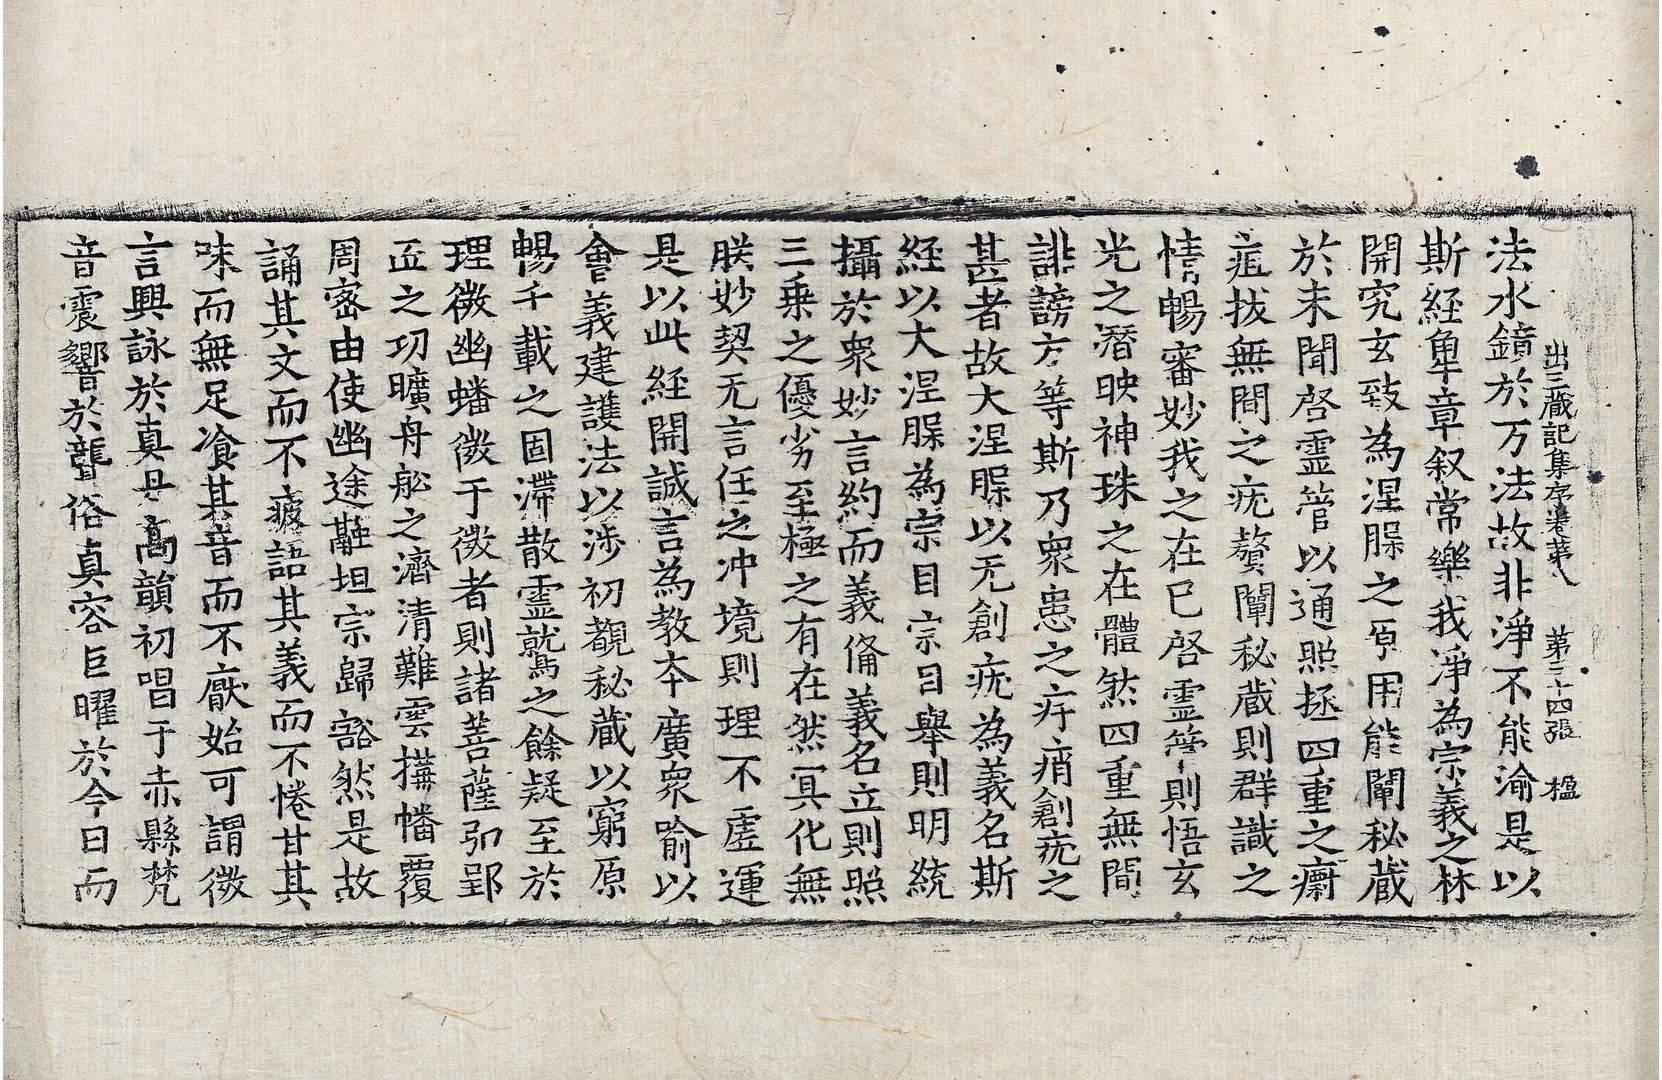 出三藏記集序卷第八　第三十四張　楹
法水鏡於万法故非淨不能渝是以
斯経㡁章叙常樂我淨為宗義之林
開究玄致為涅槃之原用能闡秘蔵
於未聞啓霊管以通照拯四重之癘
疽拔無間之疣贅闡秘蔵則群識之
情暢審妙我之在已啓霊管則悟玄
光之潛映神珠之在體然四重無間
誹謗方等斯乃衆患之疔痟創疣之
甚者故大涅槃以无創疣為義名斯
経以大涅槃為宗目宗目舉則明統
攝於衆妙言約而義俻義名立則照
三乗之優劣至極之有在然冥化無
朕妙契无言任之冲境則理不虚運
是以此経開誠言為教本廣衆喻以
會義建護法以涉初覩秘蔵以窮原
暢千載之固滯散霊鷲之餘疑至於
理微幽蟠微于微者則諸菩薩弘郢
匠之功曠舟舩之濟清難雲搆幡覆
周宻由使幽途融坦宗歸豁然是故
誦其文而不疲語其義而不惓甘其
味而無足飡其音而不厭始可謂微
言興詠於真丹髙韻初唱于赤縣梵
音震響於聾俗真容巨曜於今日而